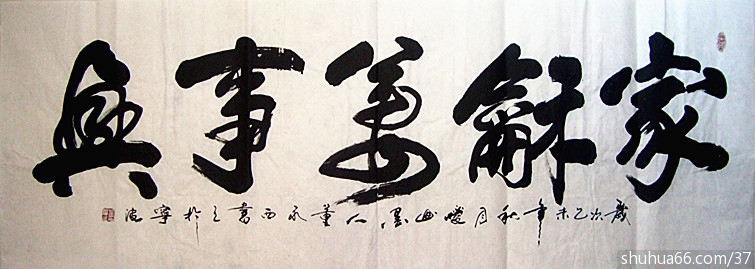 家龢萬事興
歲次乙未年秋月墨人董永西書之於寧波
shuhua66.com/37